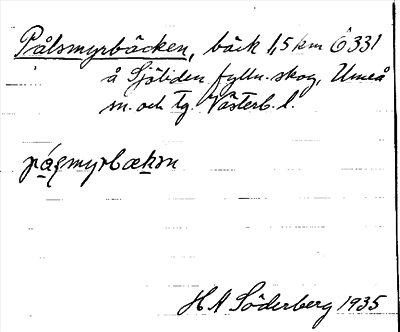 Pålsmyrbäcken, bäck 1,5 km Ö 331
å Sjöliden, fylln. skog, Umeå
sn. och tg. Västerb. l.
H A Söderberg 1935